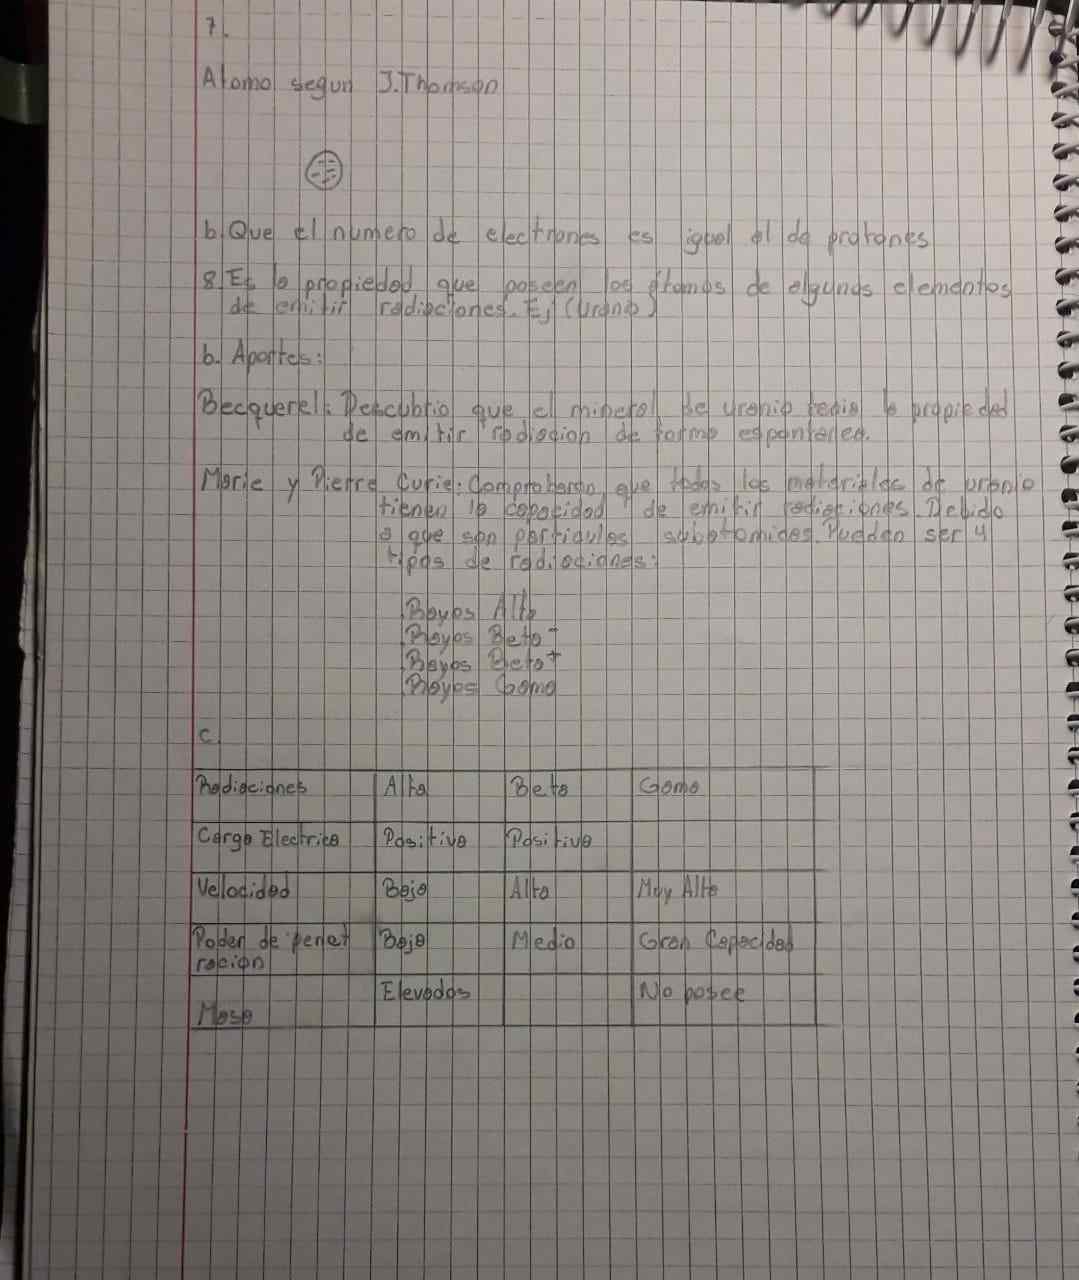 7.
Atomo segun J.Thomson
b. Que el numero de electrones es igual al de protones
8. Es la propiedad que poseen los átomos de algunos elementos
de emitir radiaciones. Ej (Uranio)
b. Aportes:
Becquerel: Descubrio que el mineral de uranio tenia la propiedad
de emitir radiacion de forma espontanea.
Marie y Pierre Curie: Comprobaron que todos los materiales de uranio
tienen la capacidad de emitir radiaciones. Debido
a que son particulas subatomicas. Pueden ser 4
tipos de radiaciones:
Rayos Alfa
Rayos Beta -
Rayos Beta +
Rayos Gama
c.
Radiaciones Alfa Beta Gama
Carga Electrica Positiva Positiva
Velocidad Baja Alta Muy Alta
Poder de penet Bajo Medio Gran Capacidad
racion
Elevadas No posee
Masa